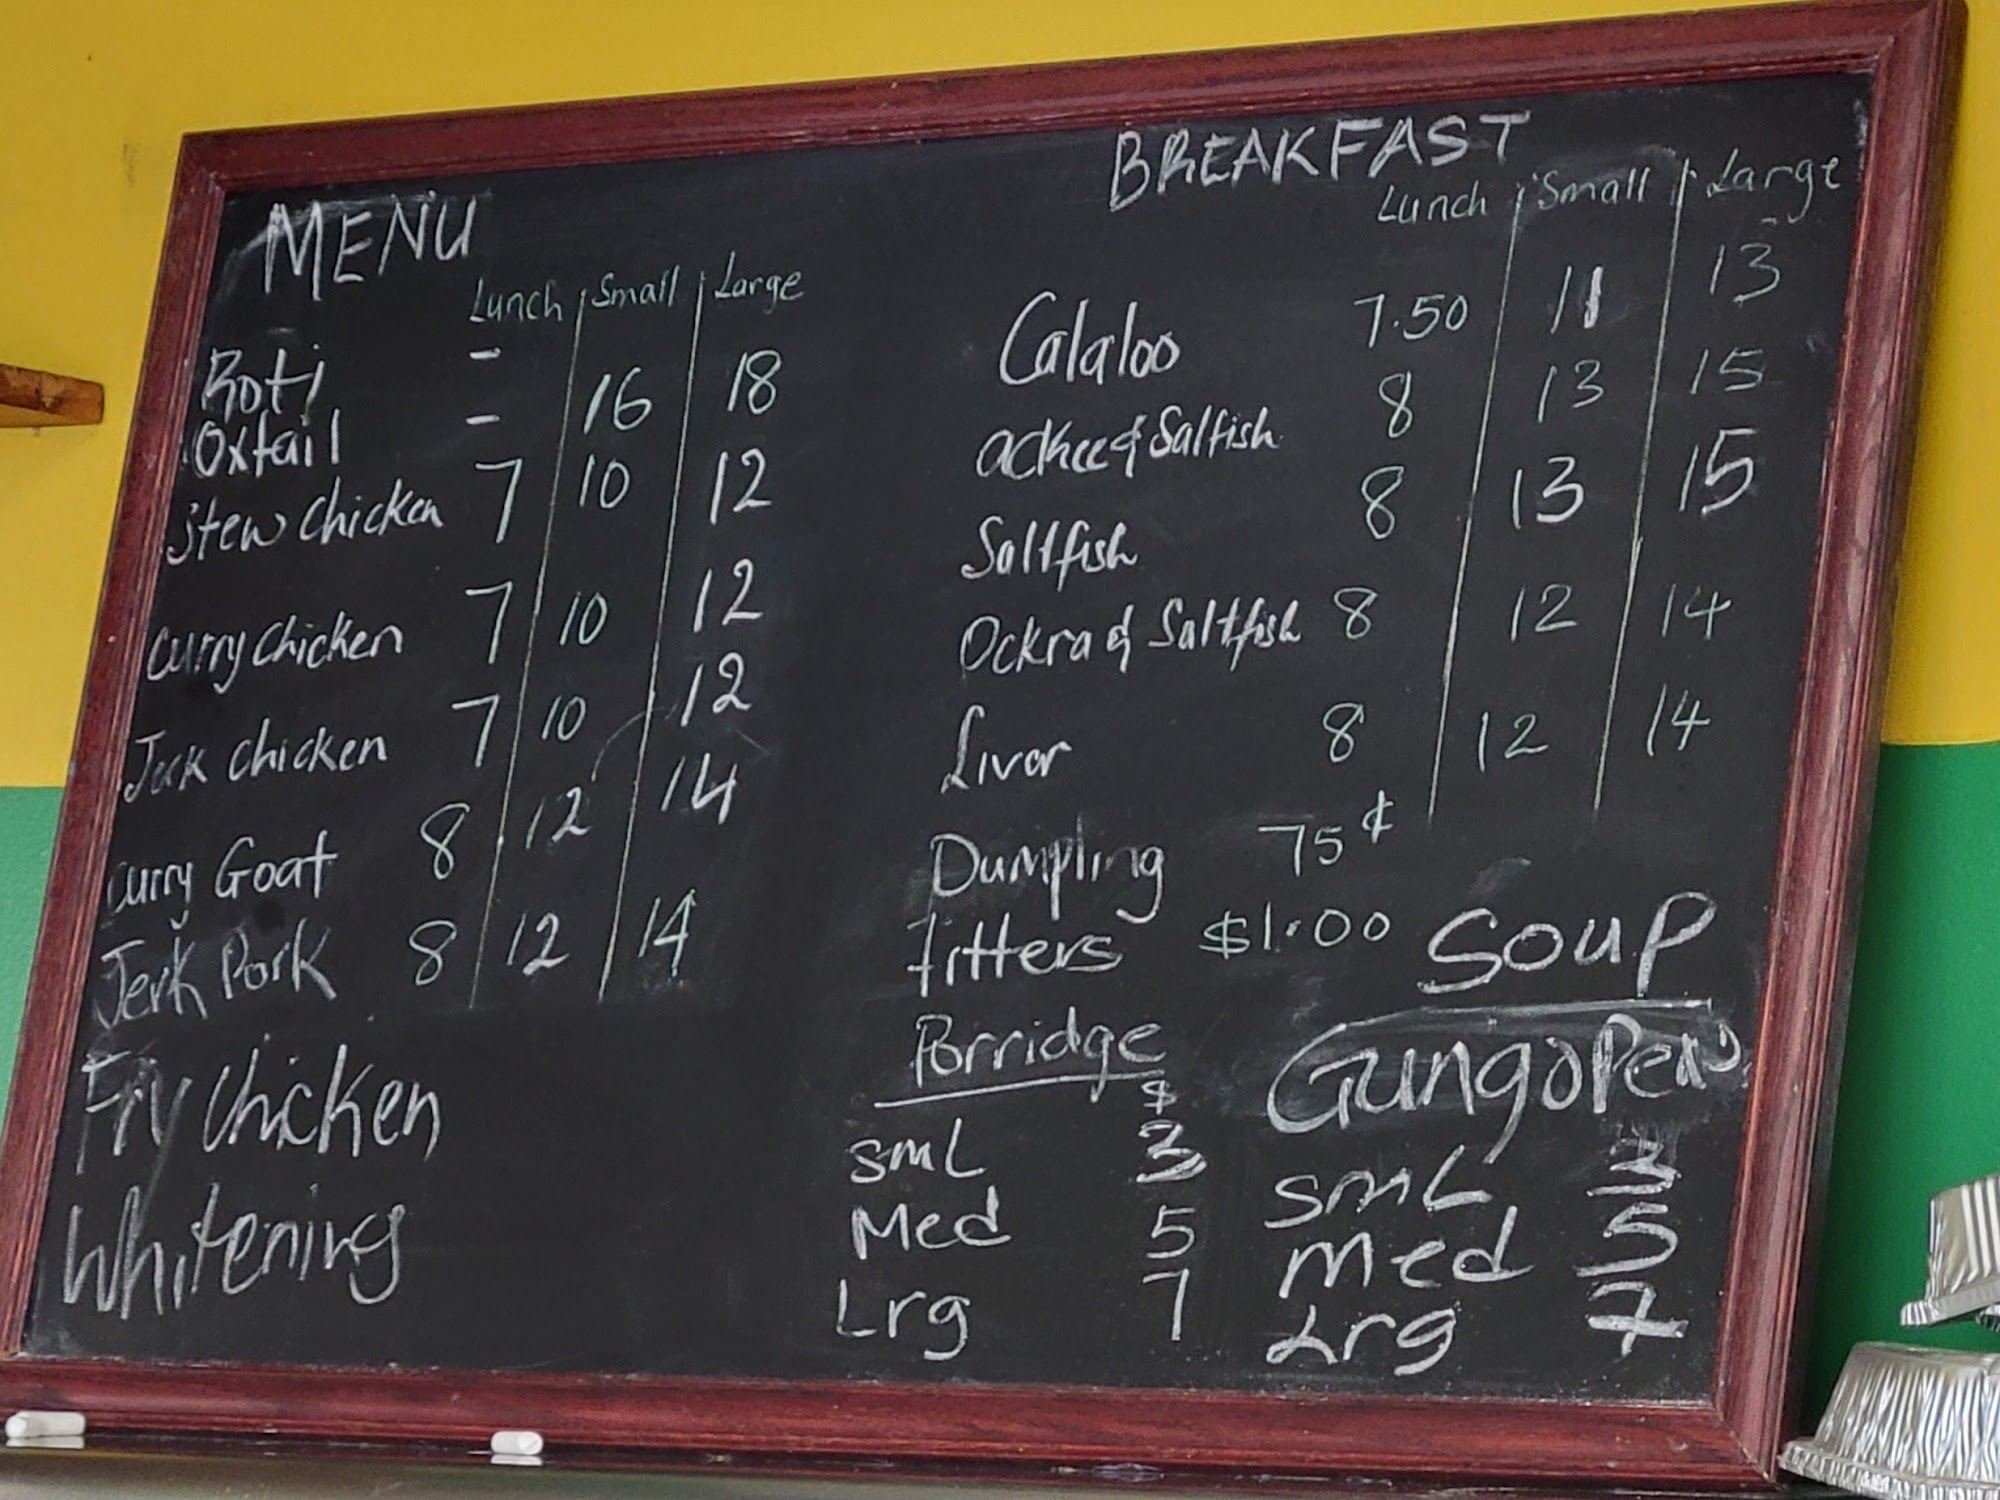 MENU
Lunch Small Large
Roti -
Oxtail - 16 18
Stew Chicken 7 10 12
Curry Chicken 7 10 12
Jerk Chicken 7 10 12
Curry Goat 8 12 14
Jerk Pork 8 12 14
Fry Chicken
Whitening
BREAKFAST
Lunch Small Large
Calaloo 7.50 11 13
Ackee & Saltfish 8 13 15
Saltfish 8 13 15
Ockra & Saltfish 8 12 14
Liver 8 12 14
Dumpling 75¢
fritters $1.00
Porridge
$
smL 3
Med 5
Lrg 7
Soup
Gungo Peas
smL 3
Med 5
Lrg 7